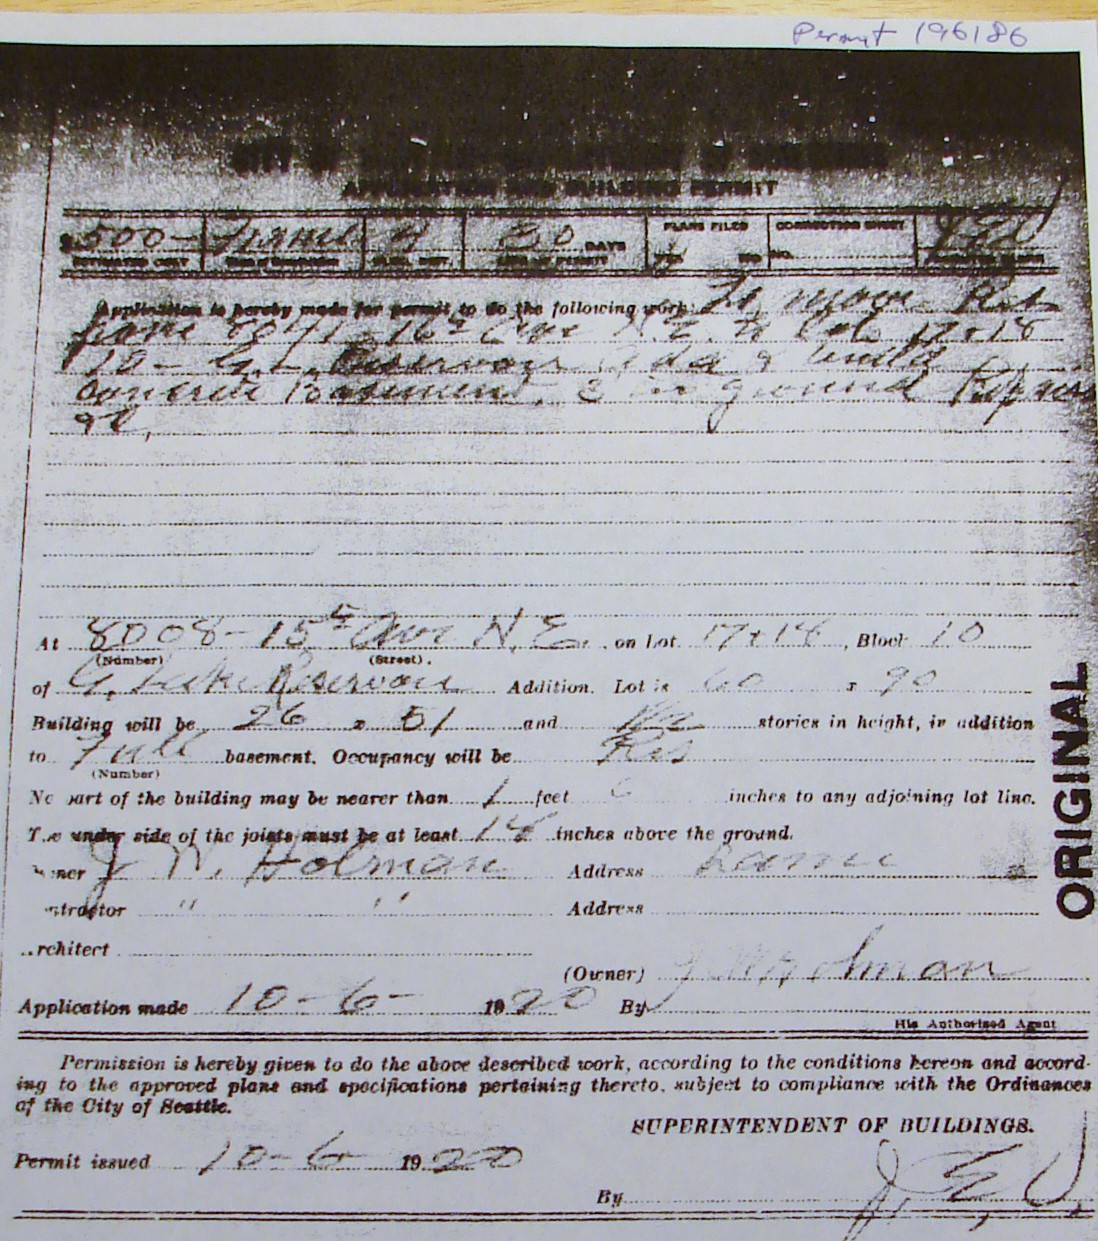 Permit 196186
APPLICATION AND BUILDING PERMIT
$500- Frame A 30 DAYS PLANS FILED CORRECTION SHEET
YES NO NO.
Application is hereby made for permit to do the following work: To move Res
from 16th Ave N.E. 17+18
10- G.L. Reservoir Add & build
concrete Basement, in ground
At 8008-15th Ave N.E. on Lot 17+18, Block 10
(Number) (Street)
of G. Lake Reservoir Addition. Lot is 60 x 90
Building will be 26 x 51 and 1 1/2 stories in height, in addition
to Full basement. Occupancy will be Res
(Number)
No part of the building may be nearer than 1 feet 6 inches to any adjoining lot line.
The under side of the joists must be at least 18 inches above the ground.
Owner J. W. Holman Address Same
Contractor " " Address
Architect
(Owner) J W Holman
Application made 10-6- 1920 By
His Authorized Agent
Permission is hereby given to do the above described work, according to the conditions hereon and accord-
ing to the approved plans and specifications pertaining thereto, subject to compliance with the Ordinances
of the City of Seattle.
SUPERINTENDENT OF BUILDINGS.
Permit issued 10-6- 1920
By
ORIGINAL